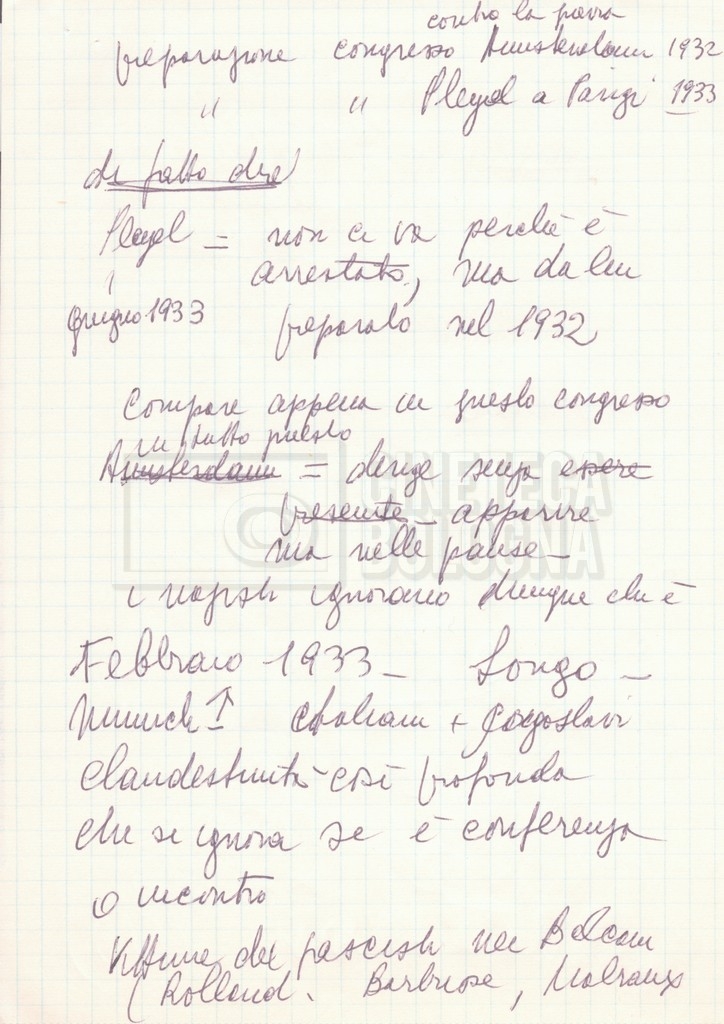 contro la guerra
preparazione congresso Amsterdam 1932
" " Pleyel a Parigi 1933
di fatto
Pleyel = non ci va perchè è
arrestato, ma da lui
giugno 1933
preparato nel 1932
Compare appena in questo congresso
in tutto questo
Amsterdam = dirige senza essere
presente apparire
ma nelle pause -
CINETECA
BOLOGNA
i nazisti ignorano dunque chi è
Febbraio 1933 - Longo -
Munich ↑ Italiani + Jugoslavi
Clandestinità così profonda
che si ignora se è conferenza
o incontro
Vittime dei fascisti nei Balcani
(Rolland. Barbusse, Malraux